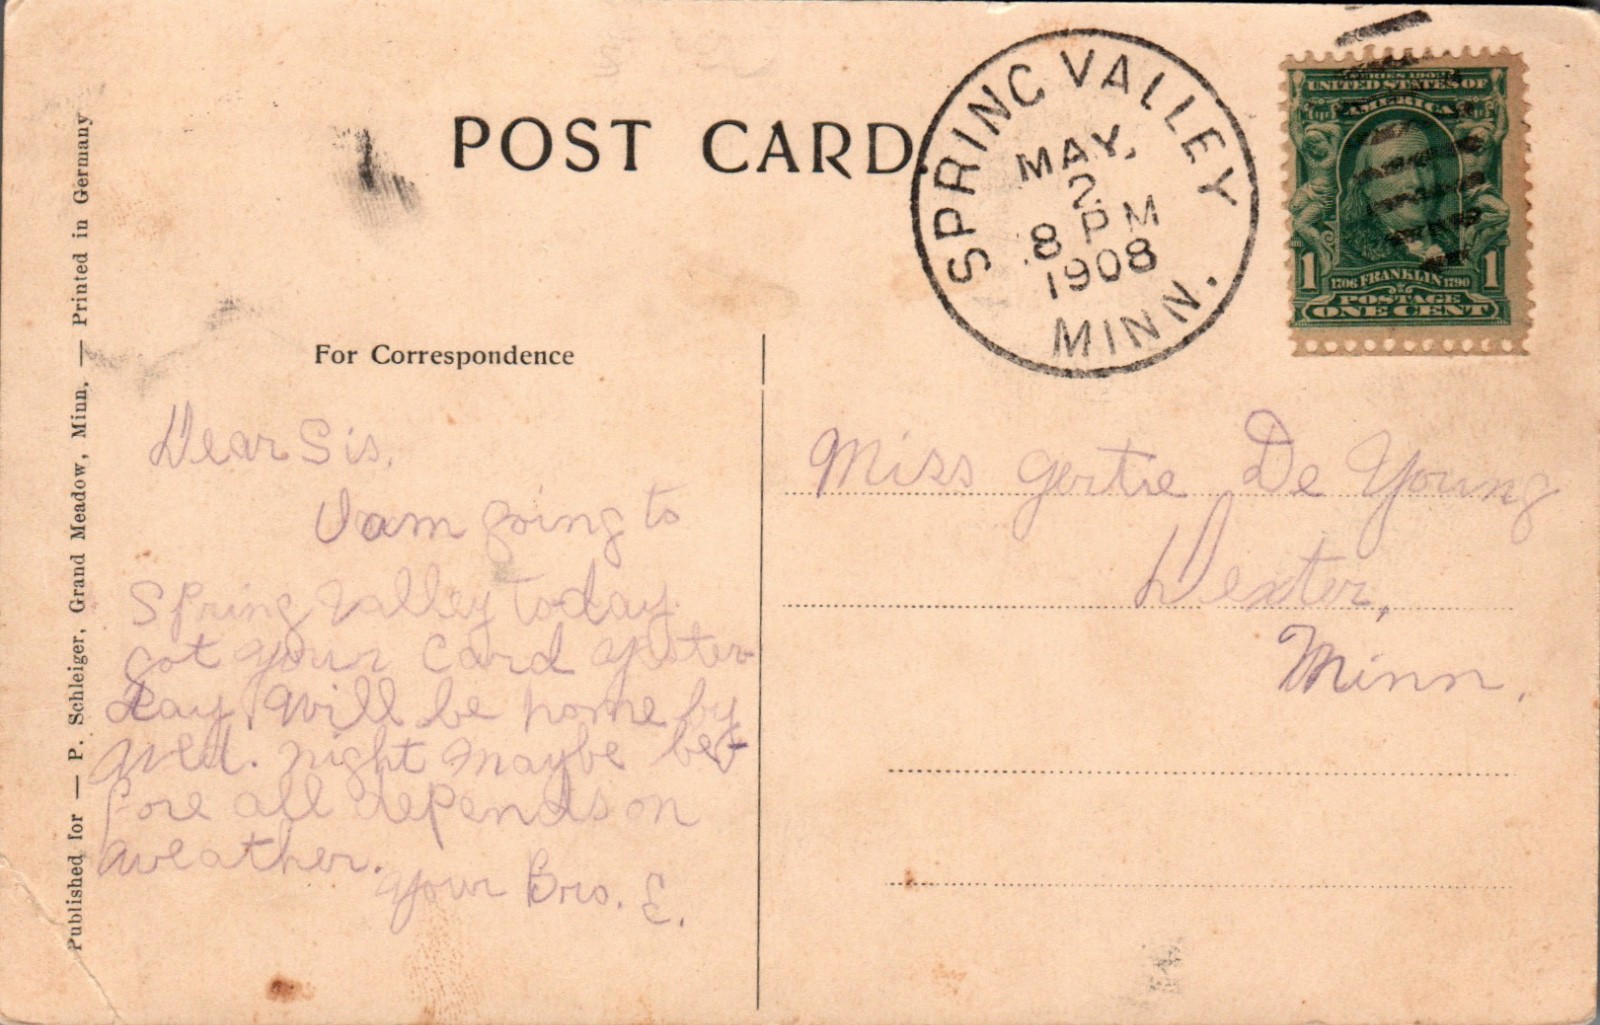 POST CARD
SPRING VALLEY
MAY.
2
8 PM
1908
MINN.
SERIES 1902
UNITED STATES OF
AMERICA
1 1706 FRANKLIN 1790 1
POSTAGE
ONE CENT
Published for — P. Schleiger, Grand Meadow, Minn. — Printed in Germany
For Correspondence
Dear Sis,
I am going to
Spring Valley today
got your card yester-
day. Will be home by
Wed. night maybe be-
fore all depends on
weather.
Your Bro. E.
Miss Gertie De Young
Dexter,
Minn.